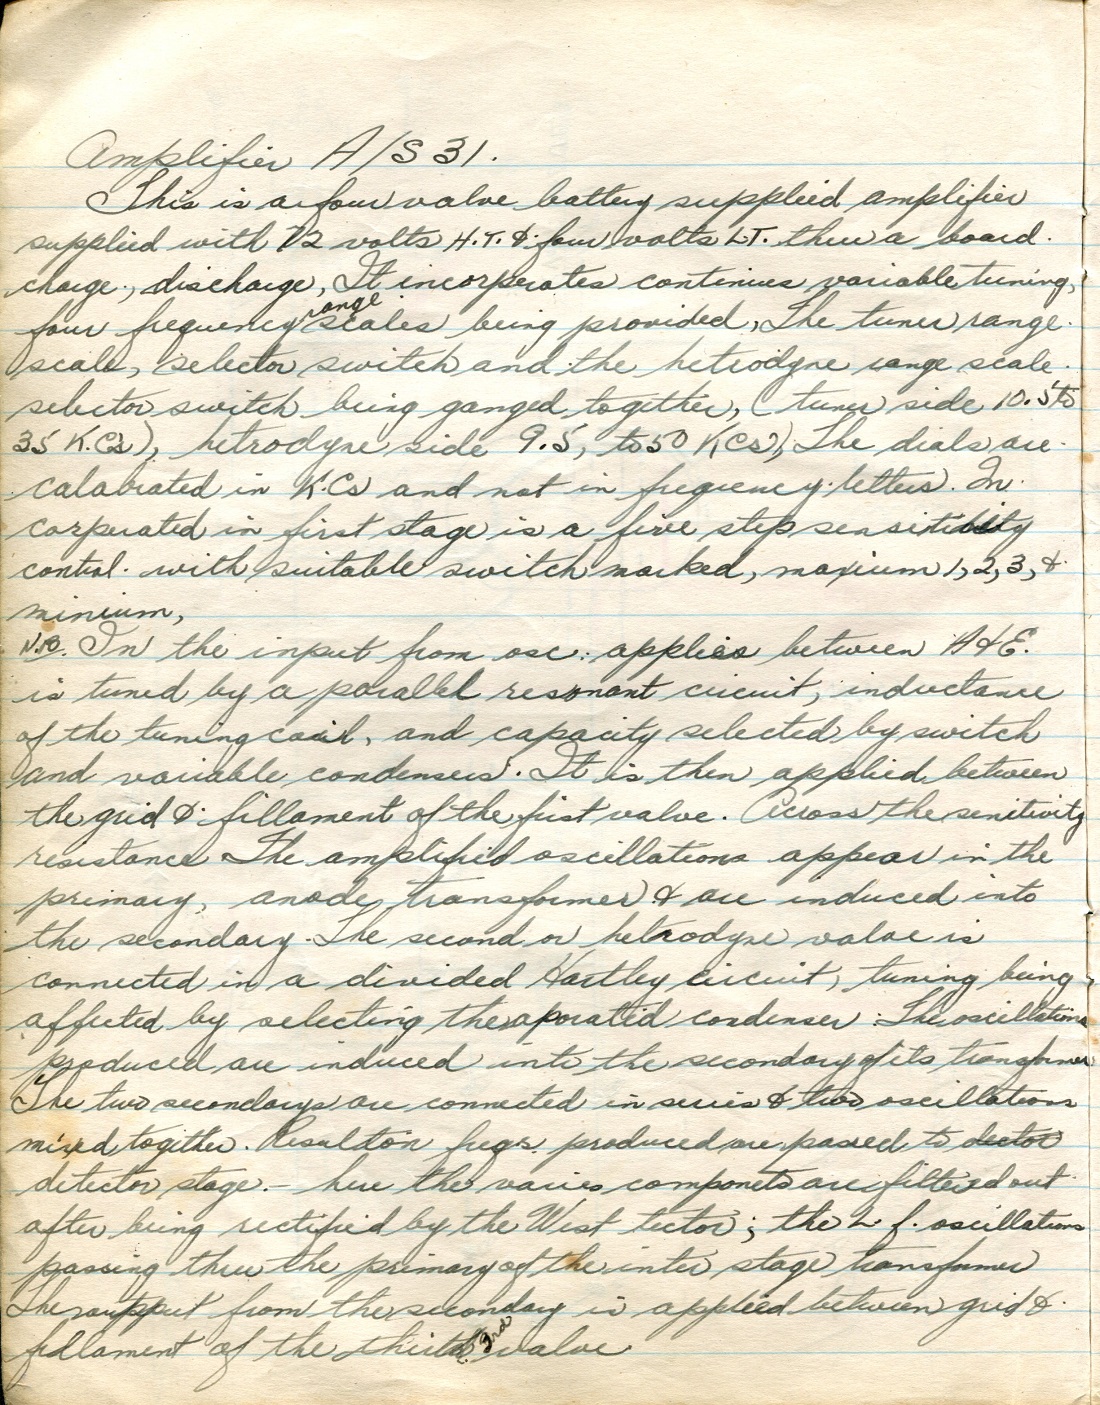 Amplifier A/S 31.
This is a four valve battery supplied amplifier
supplied with 72 volts H.T. & four volts L.T. thru a board.
charge, discharge, It incorporates continues variable tuning,
four frequency range scales being provided, The tuner range
scale, selector switch and the hetrodyne range scale
selector switch being ganged together, (tuner side 10.5 to
35 K.Cs), hetrodyne side 9.5, to 50 KCs), The dials are
calabrated in K.Cs and not in freqrency letters. In
corperated in first stage is a five step sensitibity
control. with suitable switch marked, maxium 1, 2, 3, &
minium,
N.B. In the input from osc: applies between A & E.
is tuned by a parallel resonant circuit, inductance
of the tuning coil, and capacity selected by switch
and variable condensers. It is then applied between
the grid & fillament of the first valve. Across the senitivity
resistance The amplified oscillations appear in the
primary, anode, transformer & are induced into
the secondary. The second or hetrodyne valve is
connected in a divided Hartley circuit, tuning being
affected by selecting the condenser. The oscillations
produced are induced into the secondary of its transformer
The two secondarys are connected in series & two oscillations
mixed together. Resultion freqs. produced are passed to dector
detector stage. - here the varies componets are filtered out
after being rectified by the West tector; the L.f. oscillations
passing thru the primary of the inter stage transformer
The output from the secondary is applied between grid &
fillament of the third 3rd valve